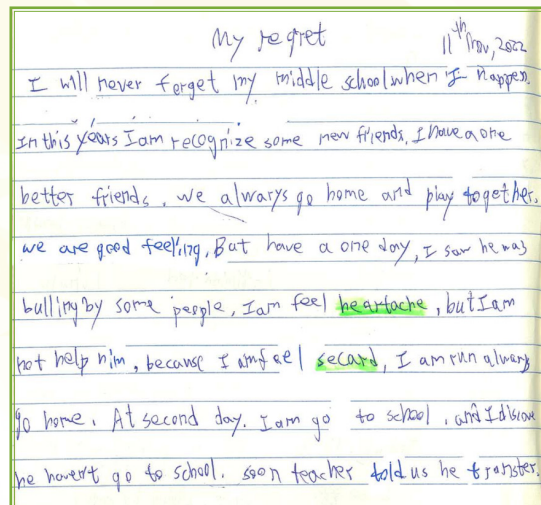 My regret
11th Nov, 2022
I will never forget my middle school when I happen.
In this years I am recognize some new friends, I have a one
better friends, we alwarys go home and play together.
we are good feeling, But have a one day, I saw he was
bulling by some people, I am feel heartache, but I am
not help him, because I am feel secard, I am run alwary
go home. At second day. I am go to school, and I discove
he haven't go to school. soon teacher told us he transter.